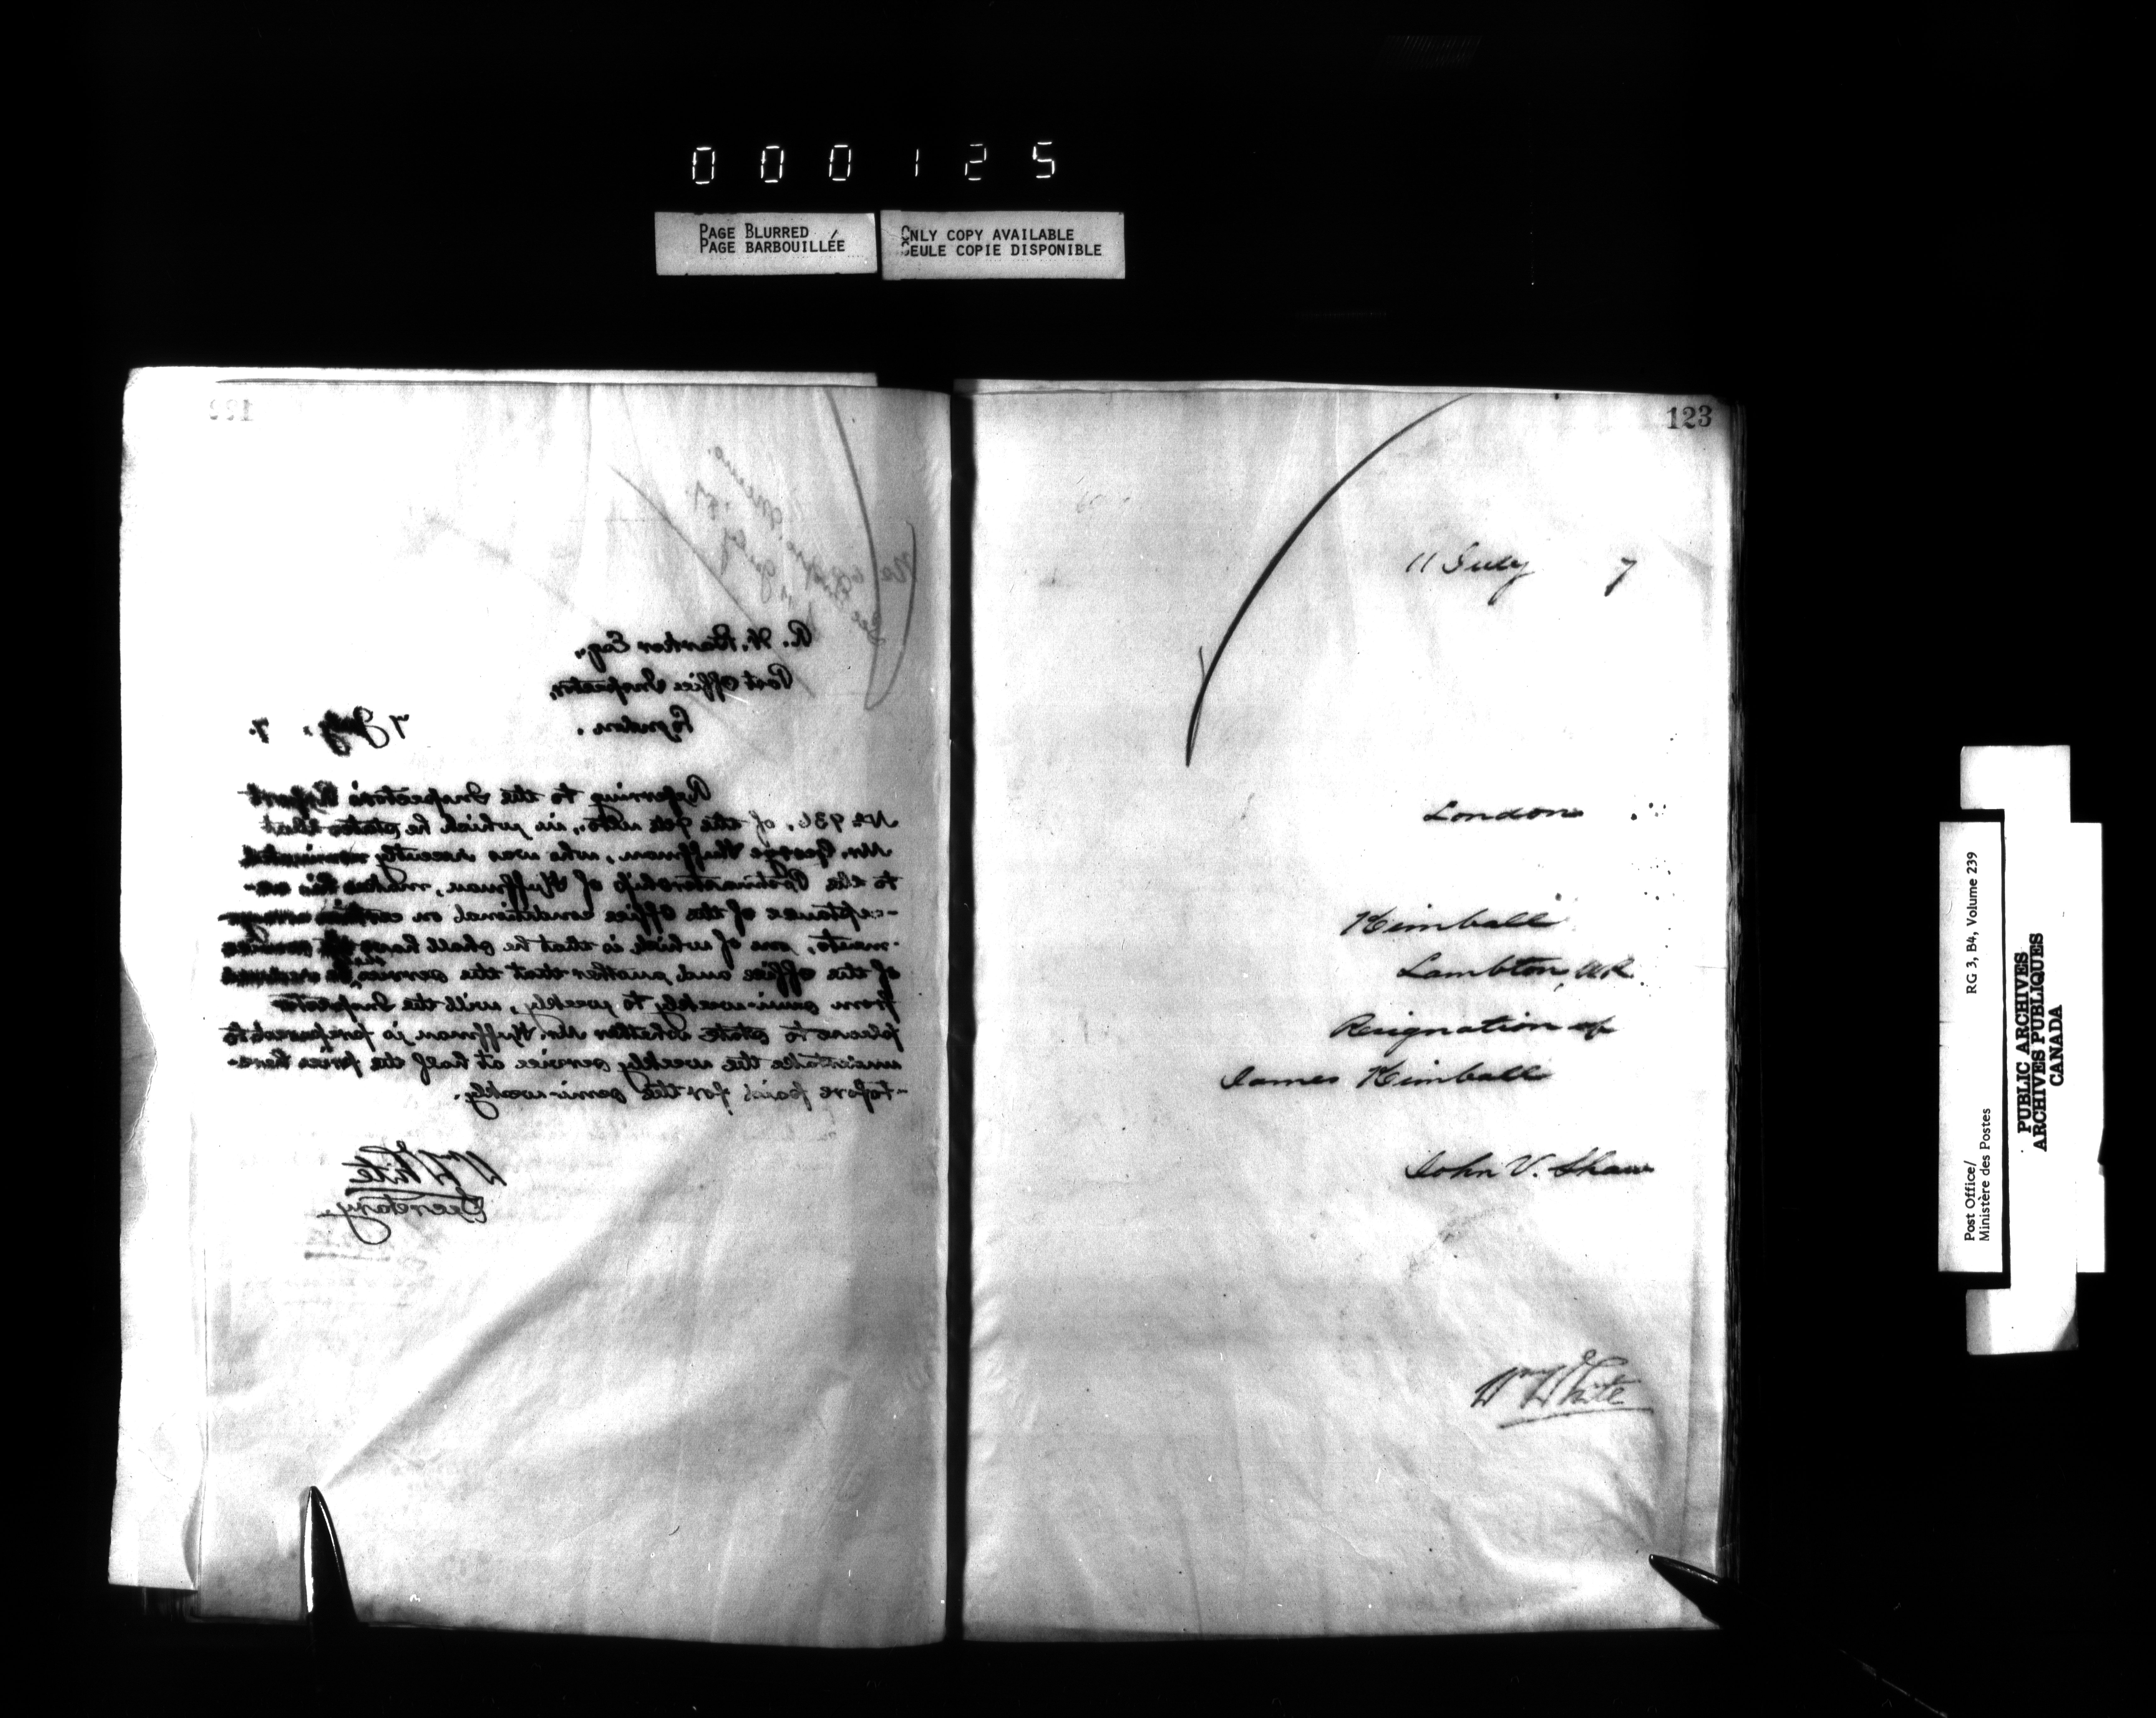 000125
PAGE BLURRED
PAGE BARBOUILLÉE
ONLY COPY AVAILABLE
SEULE COPIE DISPONIBLE
122
R. W. Barker Esq.,
Post Office Inspector,
London.
7 July, 7.
Referring to the Inspector's Report
No 936, of the 9th ulto., in which he states that
Mr. George Huffman, who was recently nominated
to the Postmastership of Huffman, makes his ac-
-ceptance of the office conditional on certain arrange
-ments, one of which is that he shall have the
of the office and another that the service be reduced
from semi-weekly to weekly, will the Inspector
please to state whether Mr. Huffman is prepared to
undertake the weekly service at half the price here-
-tofore paid for the semi-weekly.
Wm White
Secretary.
123
11 July 7
London
Kimball
Lambton, W.R.
Resignation of
James Kimball
John V. Shaw
Wm White
Post Office/
Ministère des Postes
RG 3, B4, Volume 239
PUBLIC ARCHIVES
ARCHIVES PUBLIQUES
CANADA